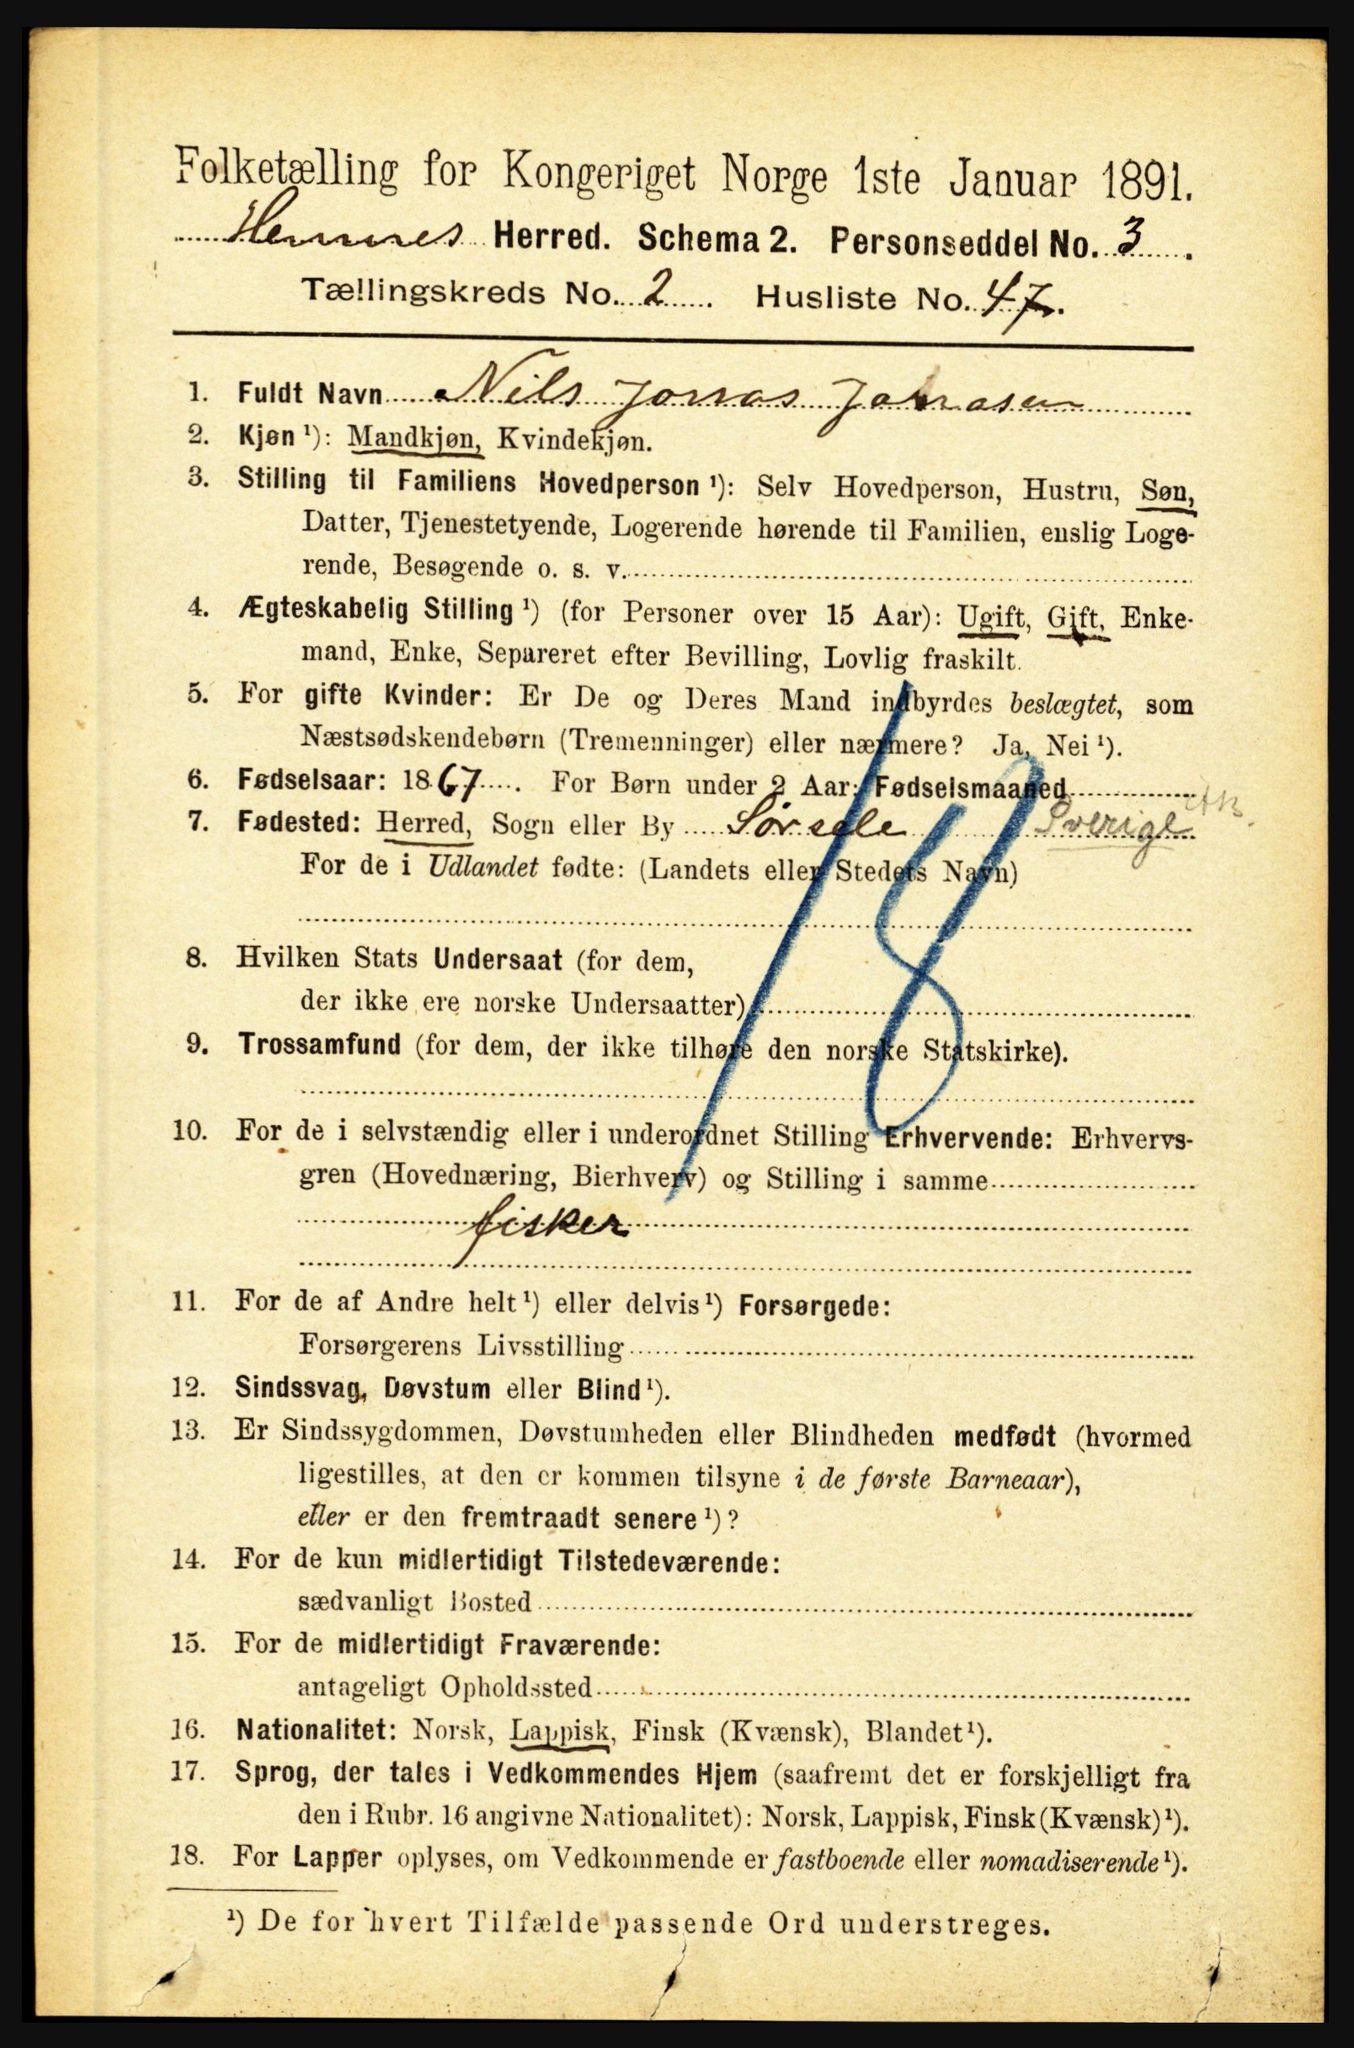 Folketælling for Kongeriget Norge 1ste Januar 1891.
Hemnes Herred. Schema 2. Personseddel No. 3.
Tællingskreds No. 2. Husliste No. 47.
1. Fuldt Navn Nils Jonas Jonasen
2. Kjøn ¹): Mandkjøn, Kvindekjøn.
3. Stilling til Familiens Hovedperson ¹): Selv Hovedperson, Hustru, Søn,
Datter, Tjenestetyende, Logerende hørende til Familien, enslig Loge-
rende, Besøgende o. s. v.
4. Ægteskabelig Stilling ¹) (for Personer over 15 Aar): Ugift, Gift, Enke-
mand, Enke, Separeret efter Bevilling, Lovlig fraskilt.
5. For gifte Kvinder: Er De og Deres Mand indbyrdes beslægtet, som
Næstsødskendebørn (Tremenninger) eller nærmere? Ja, Nei ¹).
6. Fødselsaar: 1867. For Børn under 2 Aar: Fødselsmaaned
7. Fødested: Herred, Sogn eller By Sørsele Sverige
For de i Udlandet fødte: (Landets eller Stedets Navn)
18
8. Hvilken Stats Undersaat (for dem,
der ikke ere norske Undersaatter)
9. Trossamfund (for dem, der ikke tilhøre den norske Statskirke).
10. For de i selvstændig eller i underordnet Stilling Erhvervende: Erhvervs-
gren (Hovednæring, Bierhverv) og Stilling i samme
fisker
11. For de af Andre helt ¹) eller delvis ¹) Forsørgede:
Forsørgerens Livsstilling
12. Sindssvag, Døvstum eller Blind ¹).
13. Er Sindssygdommen, Døvstumheden eller Blindheden medfødt (hvormed
ligestilles, at den er kommen tilsyne i de første Barneaar),
eller er den fremtraadt senere ¹)?
14. For de kun midlertidigt Tilstedeværende:
sædvanligt Bosted
15. For de midlertidigt Fraværende:
antageligt Opholdssted
16. Nationalitet: Norsk, Lappisk, Finsk (Kvænsk), Blandet ¹).
17. Sprog, der tales i Vedkommendes Hjem (saafremt det er forskjelligt fra
den i Rubr. 16 angivne Nationalitet): Norsk, Lappisk, Finsk (Kvænsk) ¹).
18. For Lapper oplyses, om Vedkommende er fastboende eller nomadiserende ¹).
¹) De for hvert Tilfælde passende Ord understreges.